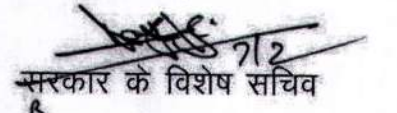 7/2
सरकार के विशेष सचिव